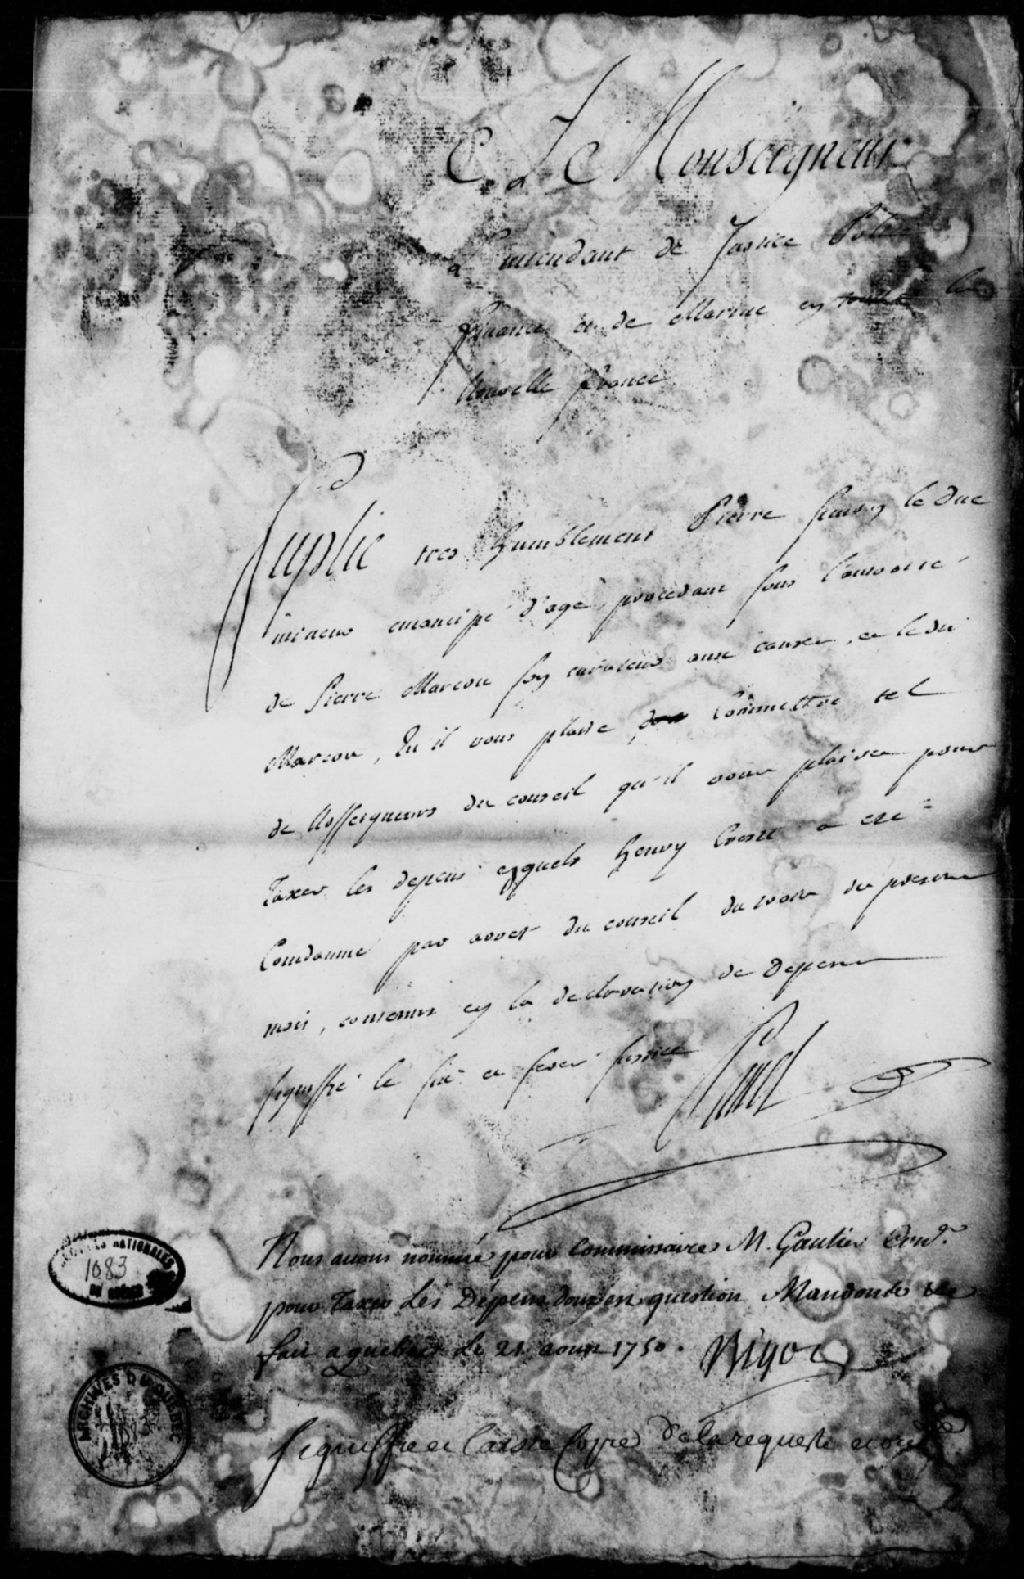 A Monseigneur
L'intendant de Justice Police
finance et de Marine en toutte la
Nouvelle france
Suplie tres humblement Pierre fransoy leduc
mineur emancipé d'age, procedant sous l'autorité
de Pierre Marcou son curateur aux causes, et ledit
Marcou, Qu'il vous plaise commettre tel
de Nosseigneurs du conseil qu'il vous plaira pour
Taxer les depens esquels henry Crete a eté
Condamné par arret du conseil du du present
mois, contenus en la declaration de Depens
signiffié le et ferés justice
Nous avons nommé pour Commissaire M. Gautier Cons.er
pour Taxer Les Depens dont en question Mandons &c
fait a quebec Le 21 aoust 1750. Bigot
signiffié et Laissé Coppie de la requeste et ord
ARCHIVES NATIONALES
1683
DU QUÉBEC
ARCHIVES DU QUEBEC